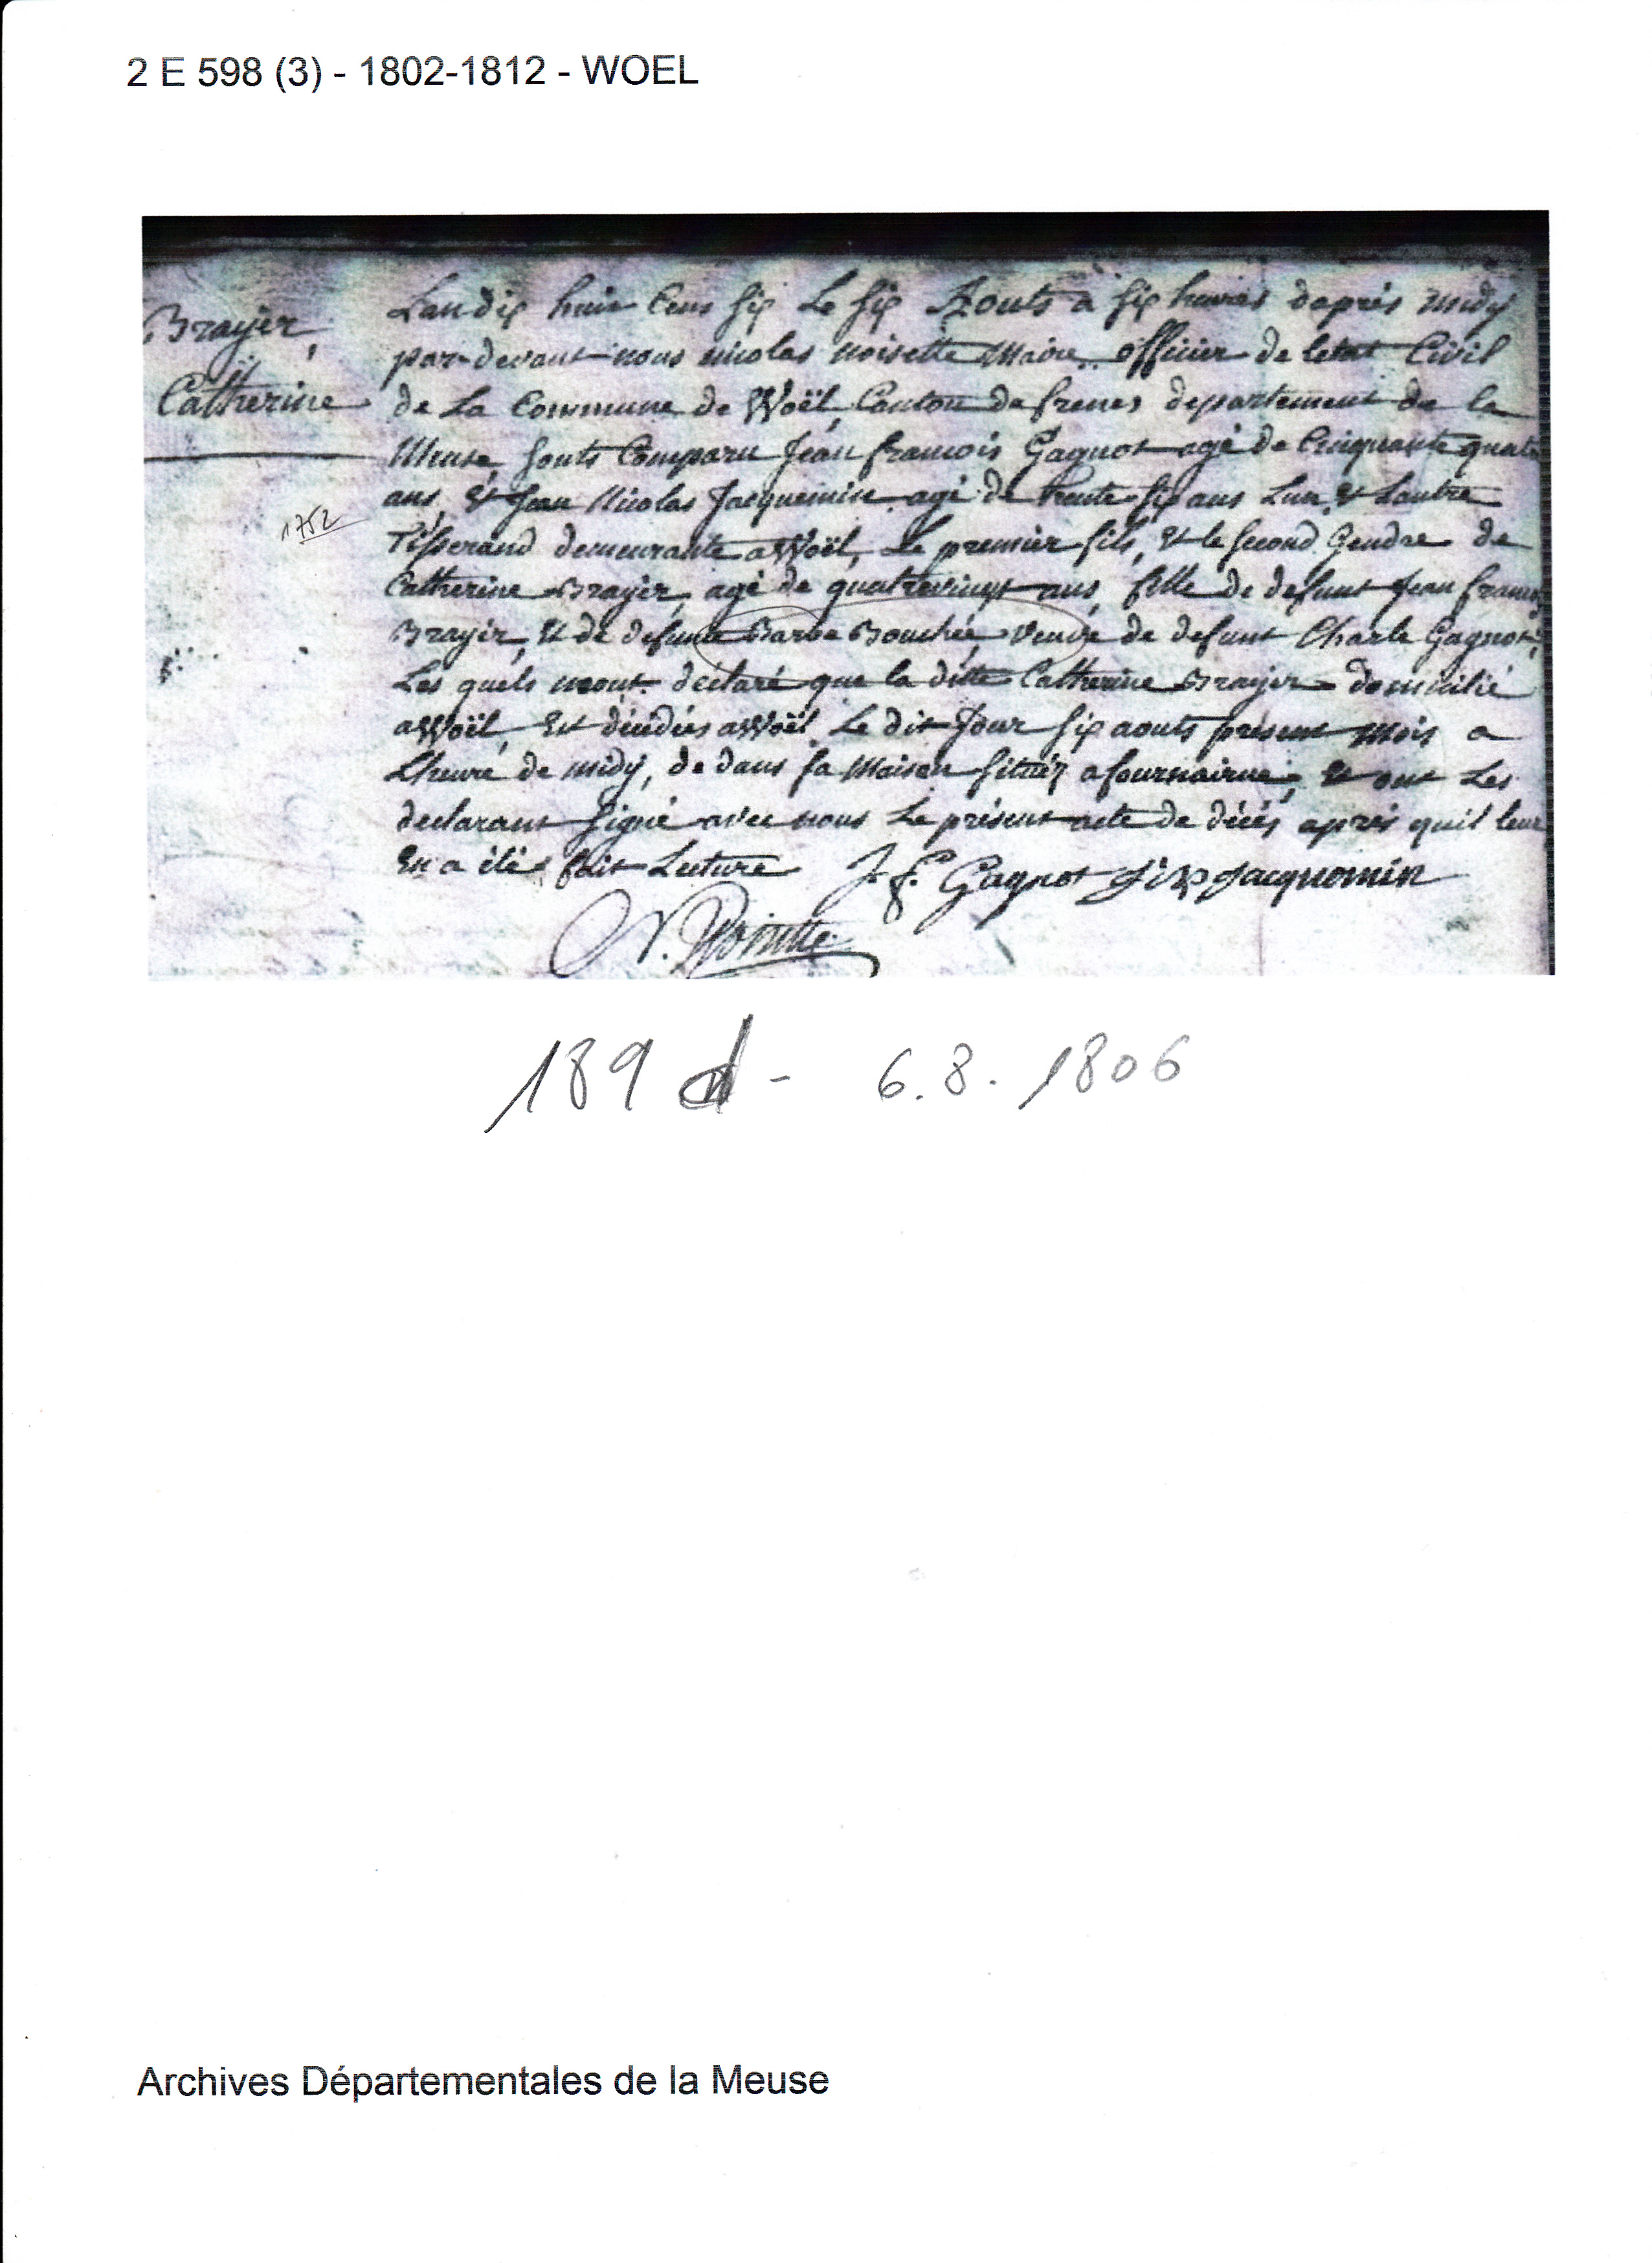 2 E 598 (3) - 1802-1812 - WOEL
Brayer
Catherine
1752
Landix huit Cens six Le six Aouts a six heures dapres midy
par devant nous nicolas noisette Maire officier de letat Civil
de La Commune de Woël, Canton de frenes departement de la
Meuse, sonts Comparu Jean francois Gagnot agé de Cinquante quatre
ans, Et Jean Nicolas Jacquemin agé de trente six ans Lun, Et Lautre
Tisserand demeurante a Woël, Le premier fils, Et le second Gendre de
Catherine Brayer, agé de quatrevingt ans, fille de defunt Jean francois
Brayer, Et de defunte Barbe Bouchée, veuve de defunt Charle Gagnot,
Les quels mont declaré que la ditte Catherine Brayer domicilié
a Woël, Est décédées a Woël Le dit Jour six aouts present mois a
Lheure de midy, de dans sa Maison située a fournairue, Et ont Les
declarant signé avec nous Le present acte de décés apres quil leur
En a été fait Lecture J. f. Gagnot Jacquemin
N. Noisette
189 d - 6.8.1806
Archives Départementales de la Meuse